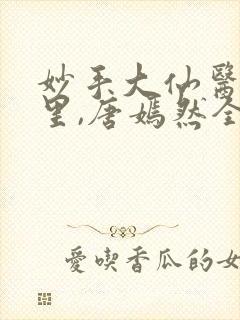 妙手大仙醫
里,唐嫣然全
愛喫香瓜的女